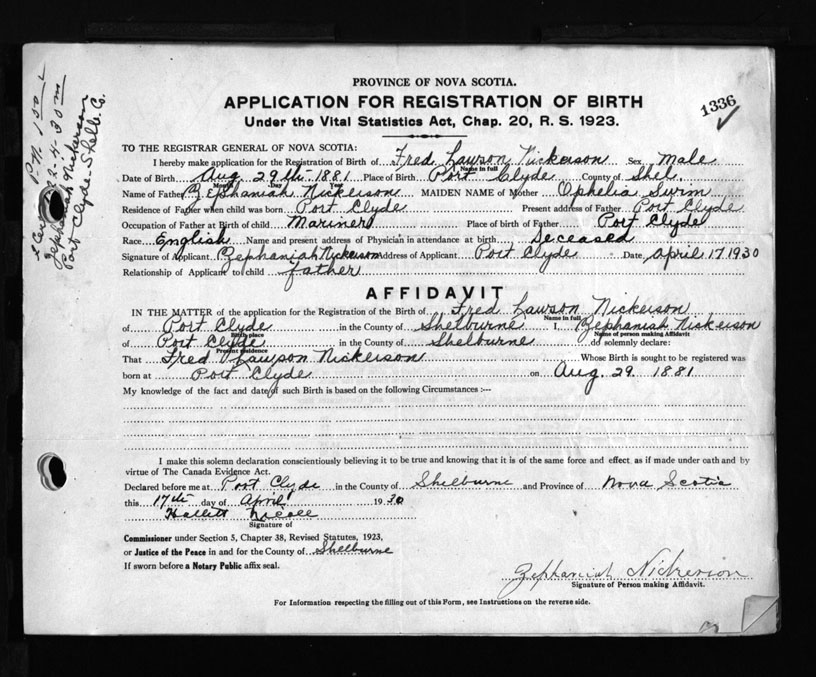 PROVINCE OF NOVA SCOTIA.
APPLICATION FOR REGISTRATION OF BIRTH
Under the Vital Statistics Act, Chap. 20, R. S. 1923.
1336
TO THE REGISTRAR GENERAL OF NOVA SCOTIA:
I hereby make application for the Registration of Birth of Fred Lawson Nickerson Sex Male
Name in full
Date of Birth Aug 29th 1881 Place of Birth Port Clyde County of Shel.
Month Day Year
Name of Father Zephaniah Nickerson MAIDEN NAME of Mother Ophelia Swim
Residence of Father when child was born Port Clyde Present address of Father Port Clyde
Occupation of Father at Birth of child Mariner Place of birth of Father Port Clyde
Race English Name and present address of Physician in attendance at birth Deceased
Signature of Applicant Zephaniah Nickerson Address of Applicant Port Clyde Date April 17 1930
Relationship of Applicant to child father
AFFIDAVIT
IN THE MATTER of the application for the Registration of the Birth of Fred Lawson Nickerson
Name in full
of Port Clyde in the County of Shelburne I, Zephaniah Nickerson
Birth place Name of person making Affidavit
of Port Clyde in the County of Shelburne do solemnly declare:
Present residence
That Fred Lawson Nickerson Whose Birth is sought to be registered was
born at Port Clyde on Aug. 29 1881
My knowledge of the fact and date of such Birth is based on the following Circumstances :--
I make this solemn declaration conscientiously believing it to be true and knowing that it is of the same force and effect as if made under oath and by
virtue of The Canada Evidence Act.
Declared before me at Port Clyde in the County of Shelburne and Province of Nova Scotia
this 17th day of April 1930
Hallett Nicoll
Signature of
Commissioner under Section 5, Chapter 38, Revised Statutes, 1923,
or Justice of the Peace in and for the County of Shelburne
If sworn before a Notary Public affix seal.
Zephaniah Nickerson
Signature of Person making Affidavit.
For Information respecting the filling out of this Form, see Instructions on the reverse side.
Zephaniah Nickerson
Port Clyde